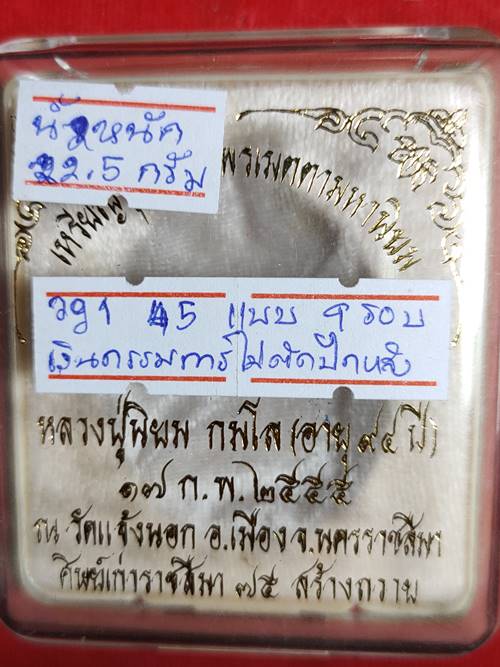 น้ำหนัก
22.5 กรัม
เหรียญ พรเมตตามหานิยม
45 แบบ 9 รอบ
เงินกรรมการ ไม่ตัดปีกหลัง
หลวงปู่นิยม กมโล (อายุ ๙๔ ปี)
๑๗ ก.พ. ๒๕๕๕
ณ วัดแจ้งนอก อ.เมือง จ.นครราชสีมา
ศิษย์เก่าราชสีมา ๗๕ สร้างถวาย